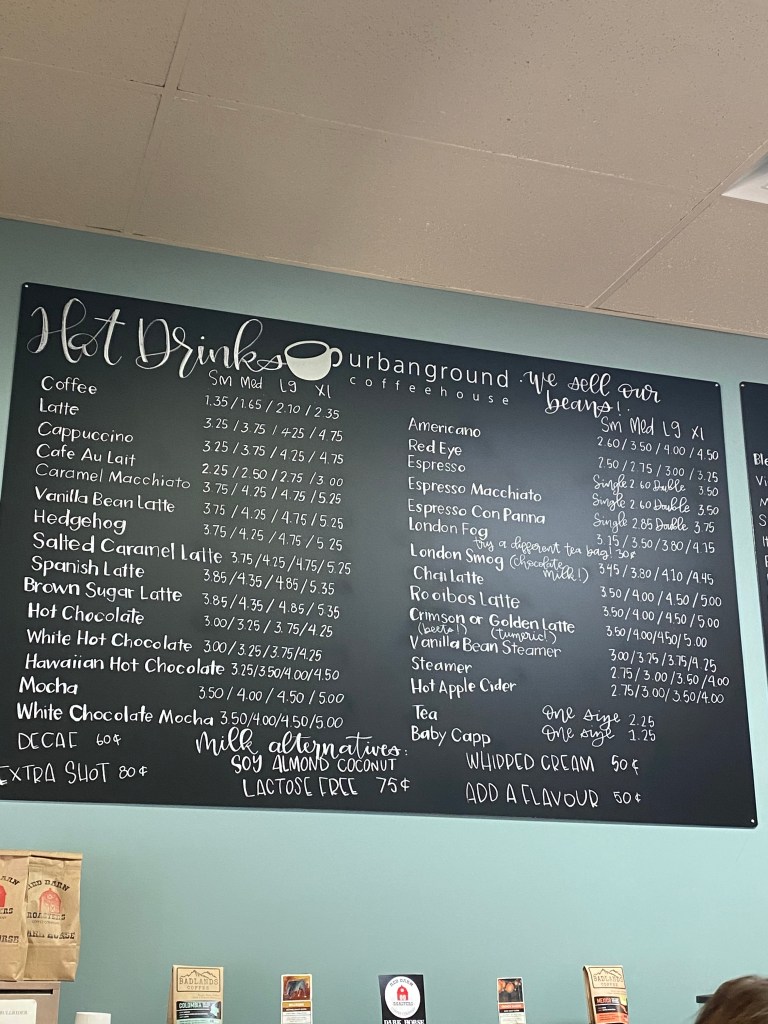 Hot Drinks urbanground
coffeehouse
we sell our
beans!
Sm Med Lg Xl
Coffee 1.35/1.65/2.10/2.35
Latte 3.25/3.75/4.25/4.75
Cappuccino 3.25/3.75/4.25/4.75
Cafe Au Lait 2.25/2.50/2.75/3.00
Caramel Macchiato 3.75/4.25/4.75/5.25
Vanilla Bean Latte 3.75/4.25/4.75/5.25
Hedgehog 3.75/4.25/4.75/5.25
Salted Caramel Latte 3.75/4.25/4.75/5.25
Spanish Latte 3.85/4.35/4.85/5.35
Brown Sugar Latte 3.85/4.35/4.85/5.35
Hot Chocolate 3.00/3.25/3.75/4.25
White Hot Chocolate 3.00/3.25/3.75/4.25
Hawaiian Hot Chocolate 3.25/3.50/4.00/4.50
Mocha 3.50/4.00/4.50/5.00
White Chocolate Mocha 3.50/4.00/4.50/5.00
DECAF 60¢
EXTRA SHOT 80¢
milk alternatives:
SOY ALMOND COCONUT
LACTOSE FREE 75¢
Sm Med Lg Xl
Americano 2.60/3.50/4.00/4.50
Red Eye 2.50/2.75/3.00/3.25
Espresso Single 2.60 Double 3.50
Espresso Macchiato Single 2.60 Double 3.50
Espresso Con Panna Single 2.85 Double 3.75
London Fog 3.15/3.50/3.80/4.15
try a different tea bag! 30¢
London Smog (chocolate milk!) 3.45/3.80/4.10/4.45
Chai Latte 3.50/4.00/4.50/5.00
Rooibos Latte 3.50/4.00/4.50/5.00
Crimson or Golden Latte 3.50/4.00/4.50/5.00
(beets!) (tumeric!)
Vanilla Bean Steamer 3.00/3.25/3.75/4.25
Steamer 2.75/3.00/3.50/4.00
Hot Apple Cider 2.75/3.00/3.50/4.00
Tea One size 2.25
Baby Capp One size 1.25
WHIPPED CREAM 50¢
ADD A FLAVOUR 50¢
RED BARN
ROASTERS
DARK HORSE
BADLANDS
COFFEE
COLOMBIA
RED BARN
ROASTERS
DARK HORSE
BADLANDS
COFFEE